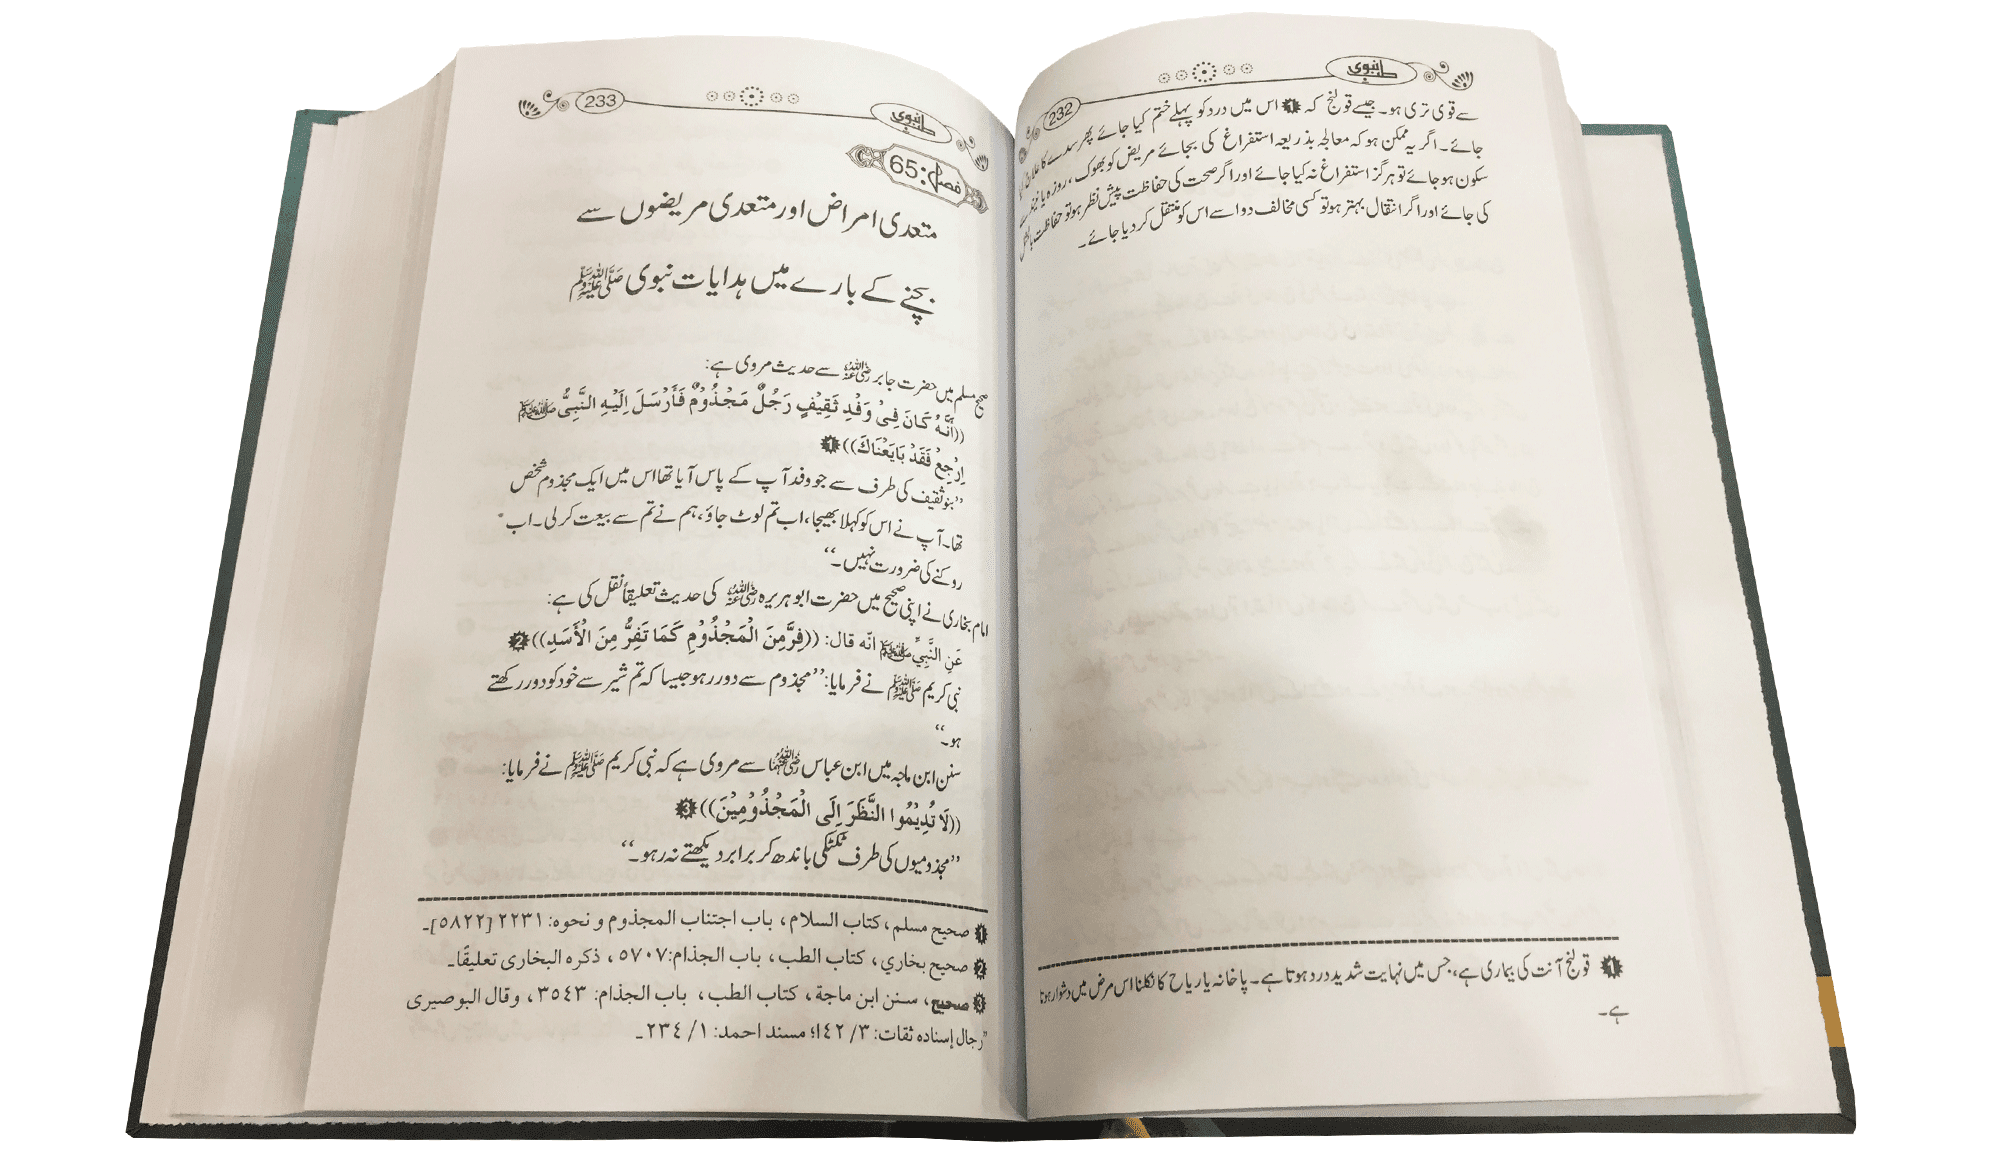 طب نبوی
232
سے قوی تری ہو۔ جیسے قولنج کہ ❶ اس میں درد کو پہلے ختم کیا جائے پھر سدے کا علاج کیا
جائے۔ اگر یہ ممکن ہو کہ معالجہ بذریعہ استفراغ کی بجائے مریض کو بھوک، روزہ یا
سکون ہو جائے تو ہرگز استفراغ نہ کیا جائے اور اگر صحت کی حفاظت پیش نظر ہو تو حفاظت
کی جائے اور اگر انتقال بہتر ہو تو کسی مخالف دوا سے اس کو منتقل کر دیا جائے۔
❶ قولنج آنت کی بیماری ہے، جس میں نہایت شدید درد ہوتا ہے۔ پاخانہ یا ریاح کا نکلنا اس مرض میں دشوار ہوتا
ہے۔
طب نبوی
233
فصل: 65
متعدی امراض اور متعدی مریضوں سے
بچنے کے بارے میں ہدایات نبوی ﷺ
صحیح مسلم میں حضرت جابر رضی اللہ عنہ سے حدیث مروی ہے:
((اَنَّهُ كَانَ فِیْ وَفْدِ ثَقِیْفٍ رَجُلٌ مَجْذُوْمٌ فَأَرْسَلَ اِلَیْهِ النَّبِیُّ ﷺ
اِرْجِعْ فَقَدْ بَایَعْنَاكَ)) ❶
’’بنو ثقیف کی طرف سے جو وفد آپ کے پاس آیا تھا اس میں ایک مجذوم شخص
تھا۔ آپ نے اس کو کہلا بھیجا، اب تم لوٹ جاؤ، ہم نے تم سے بیعت کر لی۔ اب
روکنے کی ضرورت نہیں۔‘‘
امام بخاری نے اپنی صحیح میں حضرت ابوہریرہ رضی اللہ عنہ کی حدیث تعلیقاً نقل کی ہے:
عَنِ النَّبِيِّ ﷺ انّه قال: ((فِرَّ مِنَ الْمَجْذُوْمِ كَمَا تَفِرُّ مِنَ الْأَسَدِ)) ❷
نبی کریم ﷺ نے فرمایا: ’’مجذوم سے دور رہو جیسا کہ تم شیر سے خود کو دور رکھتے
ہو۔‘‘
سنن ابن ماجہ میں ابن عباس رضی اللہ عنہما سے مروی ہے کہ نبی کریم ﷺ نے فرمایا:
((لَا تُدِیْمُوا النَّظَرَ اِلَی الْمَجْذُوْمِیْنَ)) ❸
’’مجذومیوں کی طرف ٹکٹکی باندھ کر برابر دیکھتے نہ رہو۔‘‘
❶ صحیح مسلم، کتاب السلام، باب اجتناب المجذوم و نحوه: ٢٢٣١ [٥٨٢٢]۔
❷ صحیح بخاري، کتاب الطب، باب الجذام: ٥٧٠٧، ذکره البخاری تعلیقًا۔
❸ صحیح، سنن ابن ماجة، کتاب الطب، باب الجذام: ٣٥٤٣، وقال البوصیری
’’رجال إسناده ثقات: ٣/ ١٤٢؛ مسند احمد: ١/ ٢٣٤۔